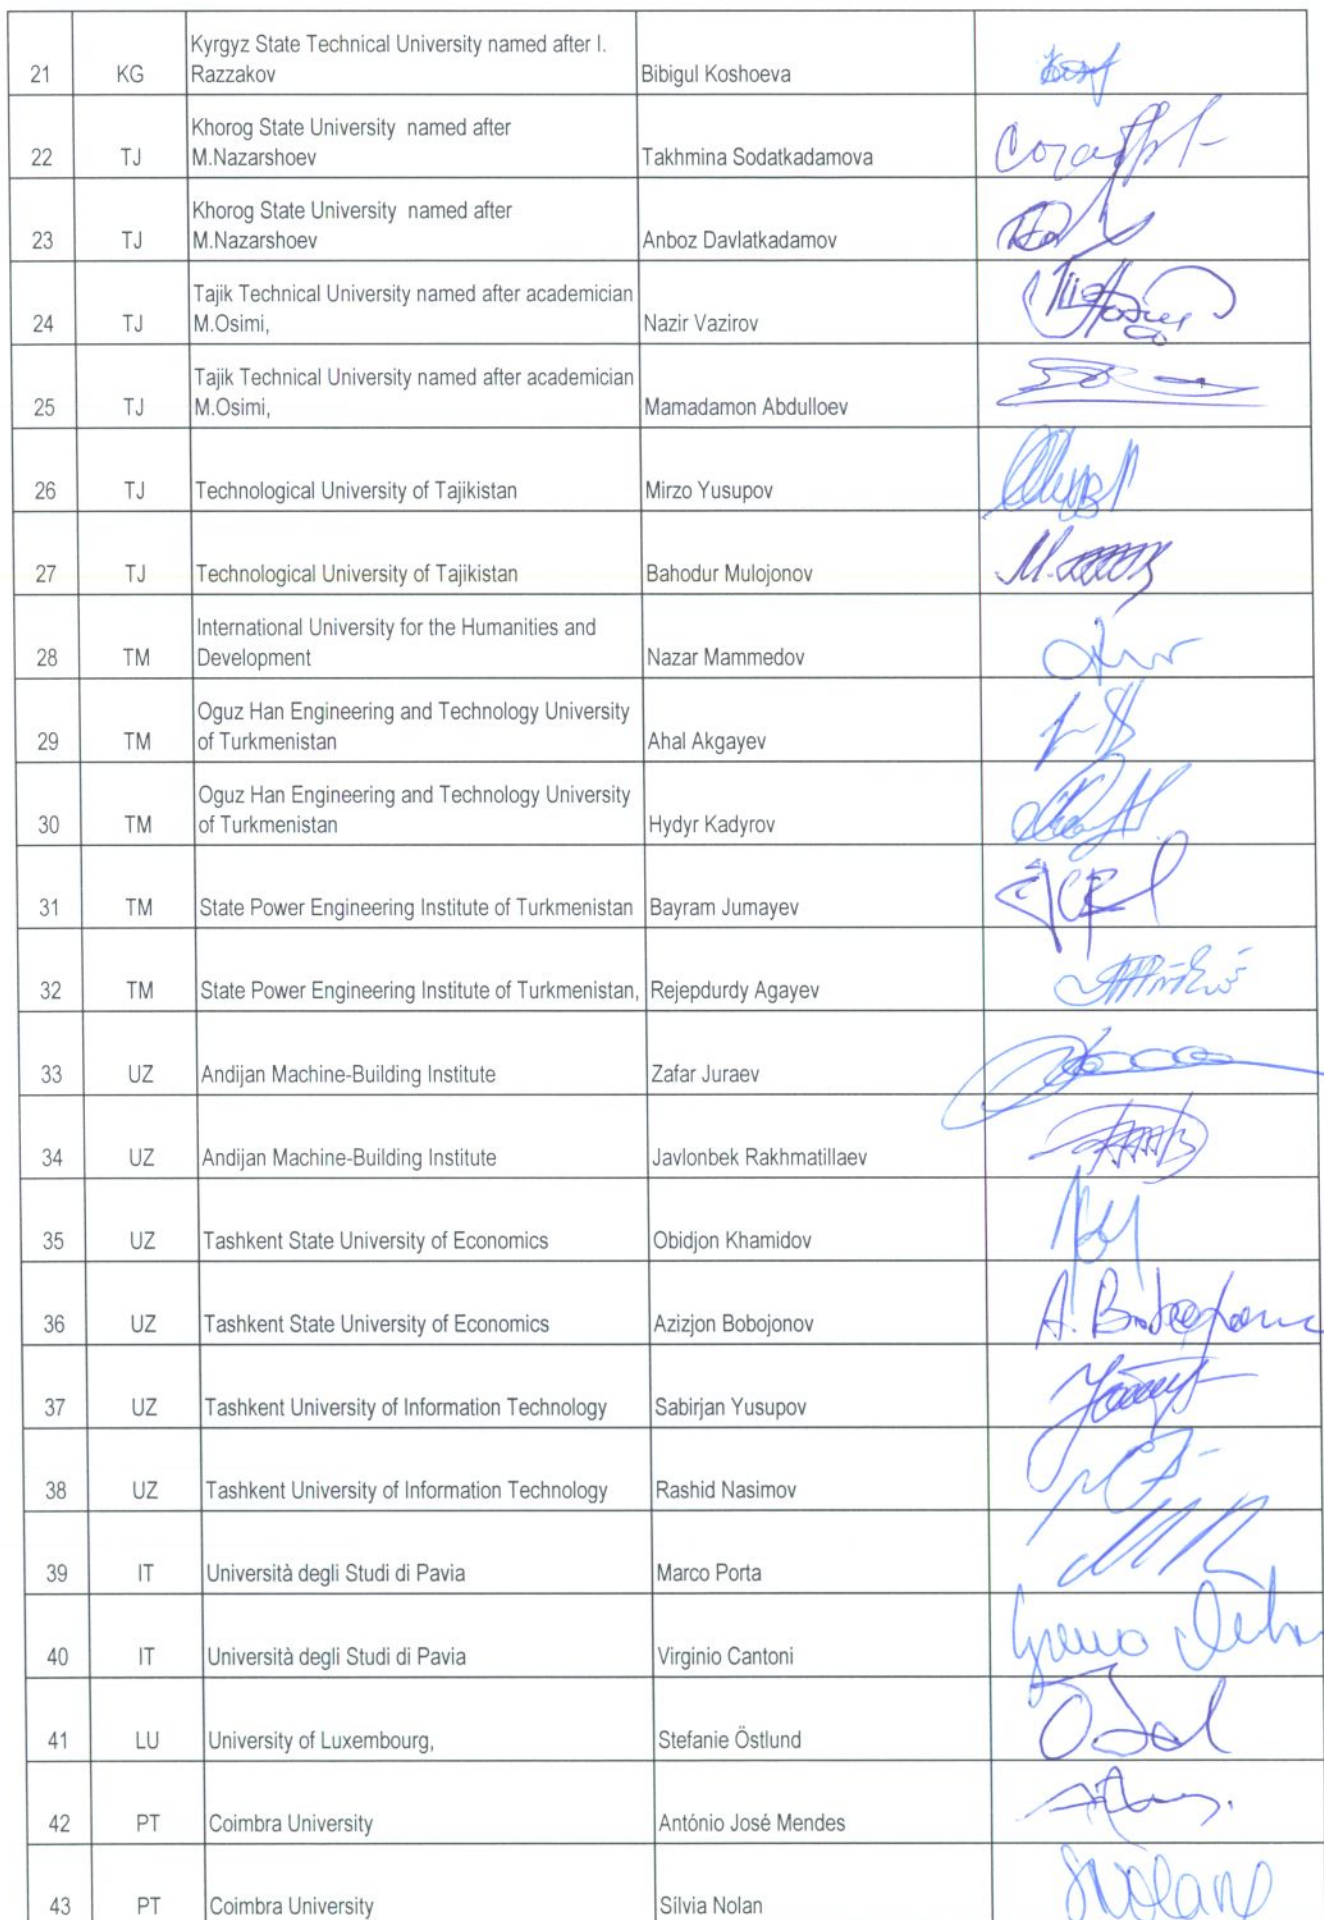 21 KG Kyrgyz State Technical University named after I. Razzakov Bibigul Koshoeva
22 TJ Khorog State University named after M.Nazarshoev Takhmina Sodatkadamova
23 TJ Khorog State University named after M.Nazarshoev Anboz Davlatkadamov
24 TJ Tajik Technical University named after academician M.Osimi, Nazir Vazirov
25 TJ Tajik Technical University named after academician M.Osimi, Mamadamon Abdulloev
26 TJ Technological University of Tajikistan Mirzo Yusupov
27 TJ Technological University of Tajikistan Bahodur Mulojonov
28 TM International University for the Humanities and Development Nazar Mammedov
29 TM Oguz Han Engineering and Technology University of Turkmenistan Ahal Akgayev
30 TM Oguz Han Engineering and Technology University of Turkmenistan Hydyr Kadyrov
31 TM State Power Engineering Institute of Turkmenistan Bayram Jumayev
32 TM State Power Engineering Institute of Turkmenistan, Rejepdurdy Agayev
33 UZ Andijan Machine-Building Institute Zafar Juraev
34 UZ Andijan Machine-Building Institute Javlonbek Rakhmatillaev
35 UZ Tashkent State University of Economics Obidjon Khamidov
36 UZ Tashkent State University of Economics Azizjon Bobojonov
37 UZ Tashkent University of Information Technology Sabirjan Yusupov
38 UZ Tashkent University of Information Technology Rashid Nasimov
39 IT Università degli Studi di Pavia Marco Porta
40 IT Università degli Studi di Pavia Virginio Cantoni
41 LU University of Luxembourg, Stefanie Östlund
42 PT Coimbra University António José Mendes
43 PT Coimbra University Sílvia Nolan